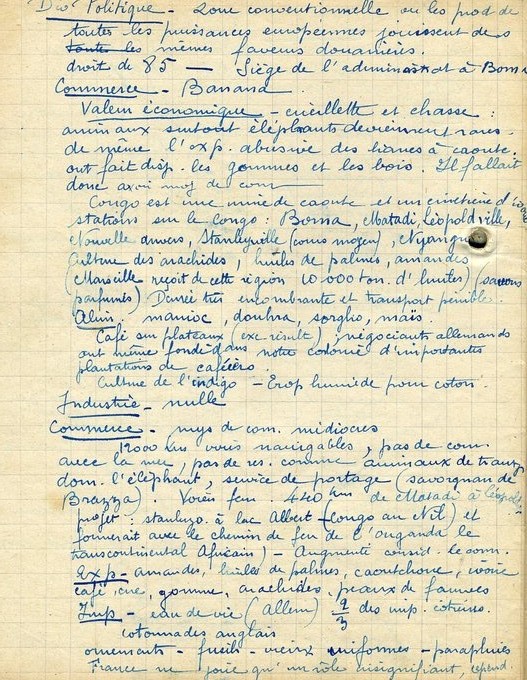 Div. Politique - Zone conventionnelle où les prod. de
toutes les puissances européennes jouissent des
toutes les mêmes faveurs douanières.
droit de 85 - Siège de l'administrat. à Boma
Commerce - Banana.
Valeur économique - cueillette et chasse :
animaux surtout éléphants deviennent rares -
de même l'exp. abusive des lianes à caoutc.
ont fait disp. les gommes et les bois. Il fallait
donc avoir moy. de com
Congo est une mine de caoutc et un cimetière d'
stations sur le Congo : Boma, Matadi, Léopoldville,
Nouvelle Anvers, Stanleyville (cours moyen), Nyangwe
Culture des arachides, huiles de palmes, amandes
(Marseille reçoit de cette région 10.000 ton. d'huiles) (savons
parfumés) Denrée très encombrante et transport pénible.
Alim. manioc, dourha, sorgho, maïs.
Café sur plateaux (exc. résult) négociants allemands
ont même fondé dans notre colonie d'importantes
plantations de caféiers.
Culture de l'indigo - trop humide pour coton
Industrie - nulle
Commerce - moys de com. médiocres
12000 km voies navigables, pas de com.
avec la mer, pas de res. comme animaux de transp
dom. l'éléphant, service de portage (savorgnan de
Brazza). Voies fer. 440 km de Matadi à Léopold
projet : à lac Albert (Congo au Nil) et
formerait avec le chemin de fer de l'Ouganda le
transcontinental Africain) - Augmente consid. le com.
Exp - amandes, huiles de palmes, caoutchouc, ivoire
café, cire, gomme, arachides, peaux de fauves
Imp - eau de vie (Allem) 2/3 des imp.
Cotonnades anglais
ornements - fusils - vieux uniformes - parapluies
France ne joue qu'un rôle insignifiant, cepend.